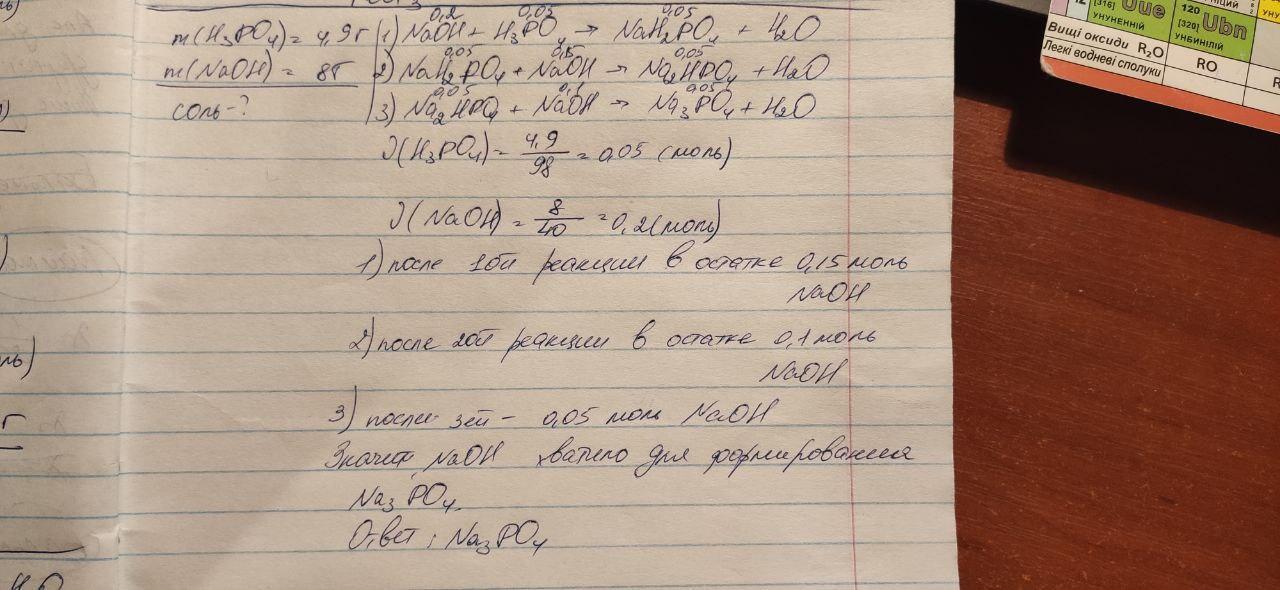 m(H₃PO₄) = 4,9г
m(NaOH) = 8г
соль-?
0,2 0,05 0,05
1) NaOH + H₃PO₄ → NaH₂PO₄ + H₂O
0,05 0,15 0,05
2) NaH₂PO₄ + NaOH → Na₂HPO₄ + H₂O
0,05 0,1 0,05
3) Na₂HPO₄ + NaOH → Na₃PO₄ + H₂O
ν(H₃PO₄) = 4,9/98 = 0,05 (моль)
ν(NaOH) = 8/40 = 0,2 (моль)
1) после 1ой реакции в остатке 0,15 моль
NaOH
2) после 2ой реакции в остатке 0,1 моль
NaOH
3) после 3ей - 0,05 моль NaOH
Значит, NaOH хватило для формирования
Na₃PO₄.
Ответ: Na₃PO₄
оль)
г
[316] Uue
УНУНЕННІЙ
120
[320] Ubn
УНБИНІЛІЙ
Вищі оксиди R₂O
RO
Легкі водневі сполуки